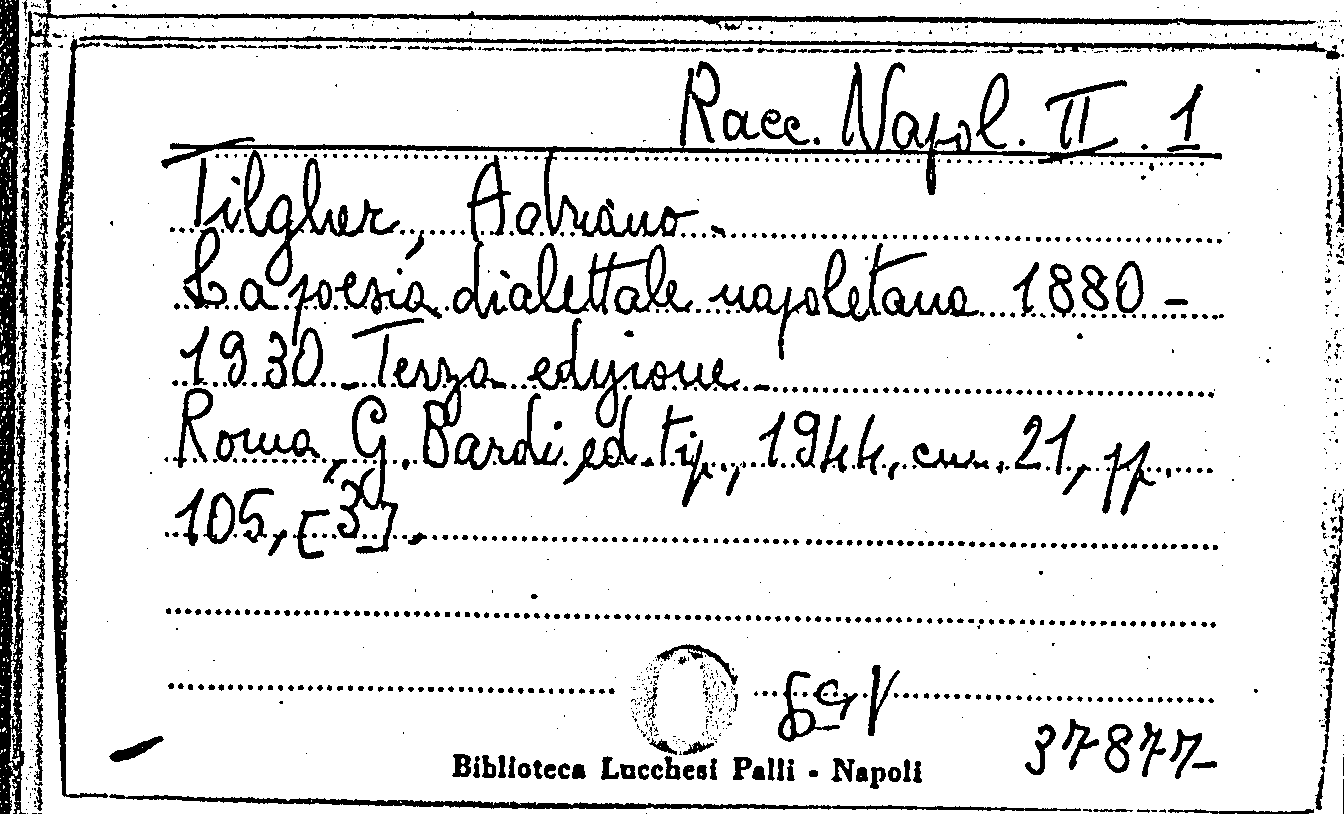 Racc. Napol. II. 1
Tilgher, Adriano.
La poesia dialettale napoletana 1880-
1930_Terza edizione_
Roma, G. Bardi, ed. tip., 1944, cm. 21, pp.
105, [3].
Biblioteca Lucchesi Palli - Napoli
37877-